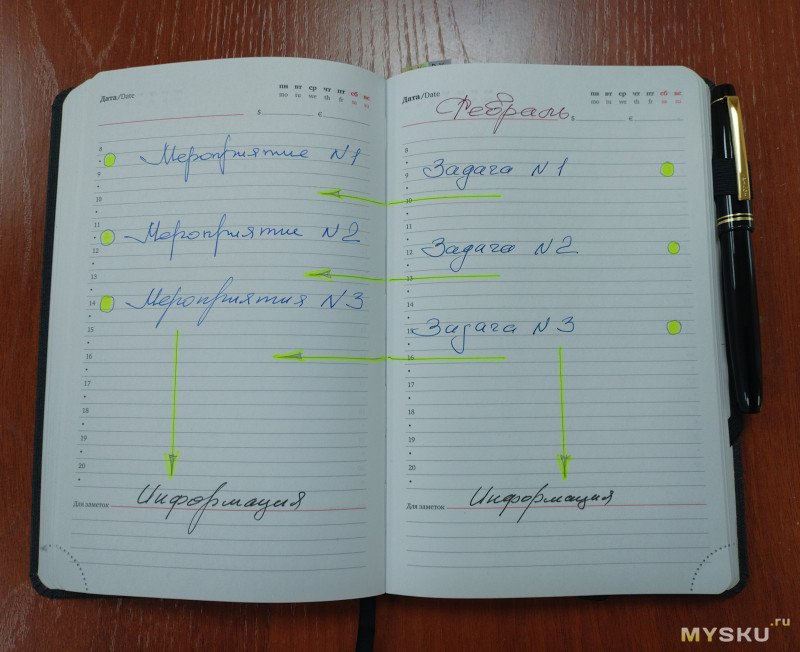 Дата/Date
пн вт ср чт пт сб вс
mo tu we th fr sa su
$ €
8
Мероприятие N1
9
10
11
Мероприятие N2
12
13
Мероприятия N3
14
15
16
17
18
19
20
Информация
Для заметок
Дата/Date
пн вт ср чт пт сб вс
mo tu we th fr sa su
Февраль
$ €
8
Задача N1
9
10
11
Задача N2
12
13
14
Задача N3
15
16
17
18
19
20
Информация
Для заметок
MYSKU.ru